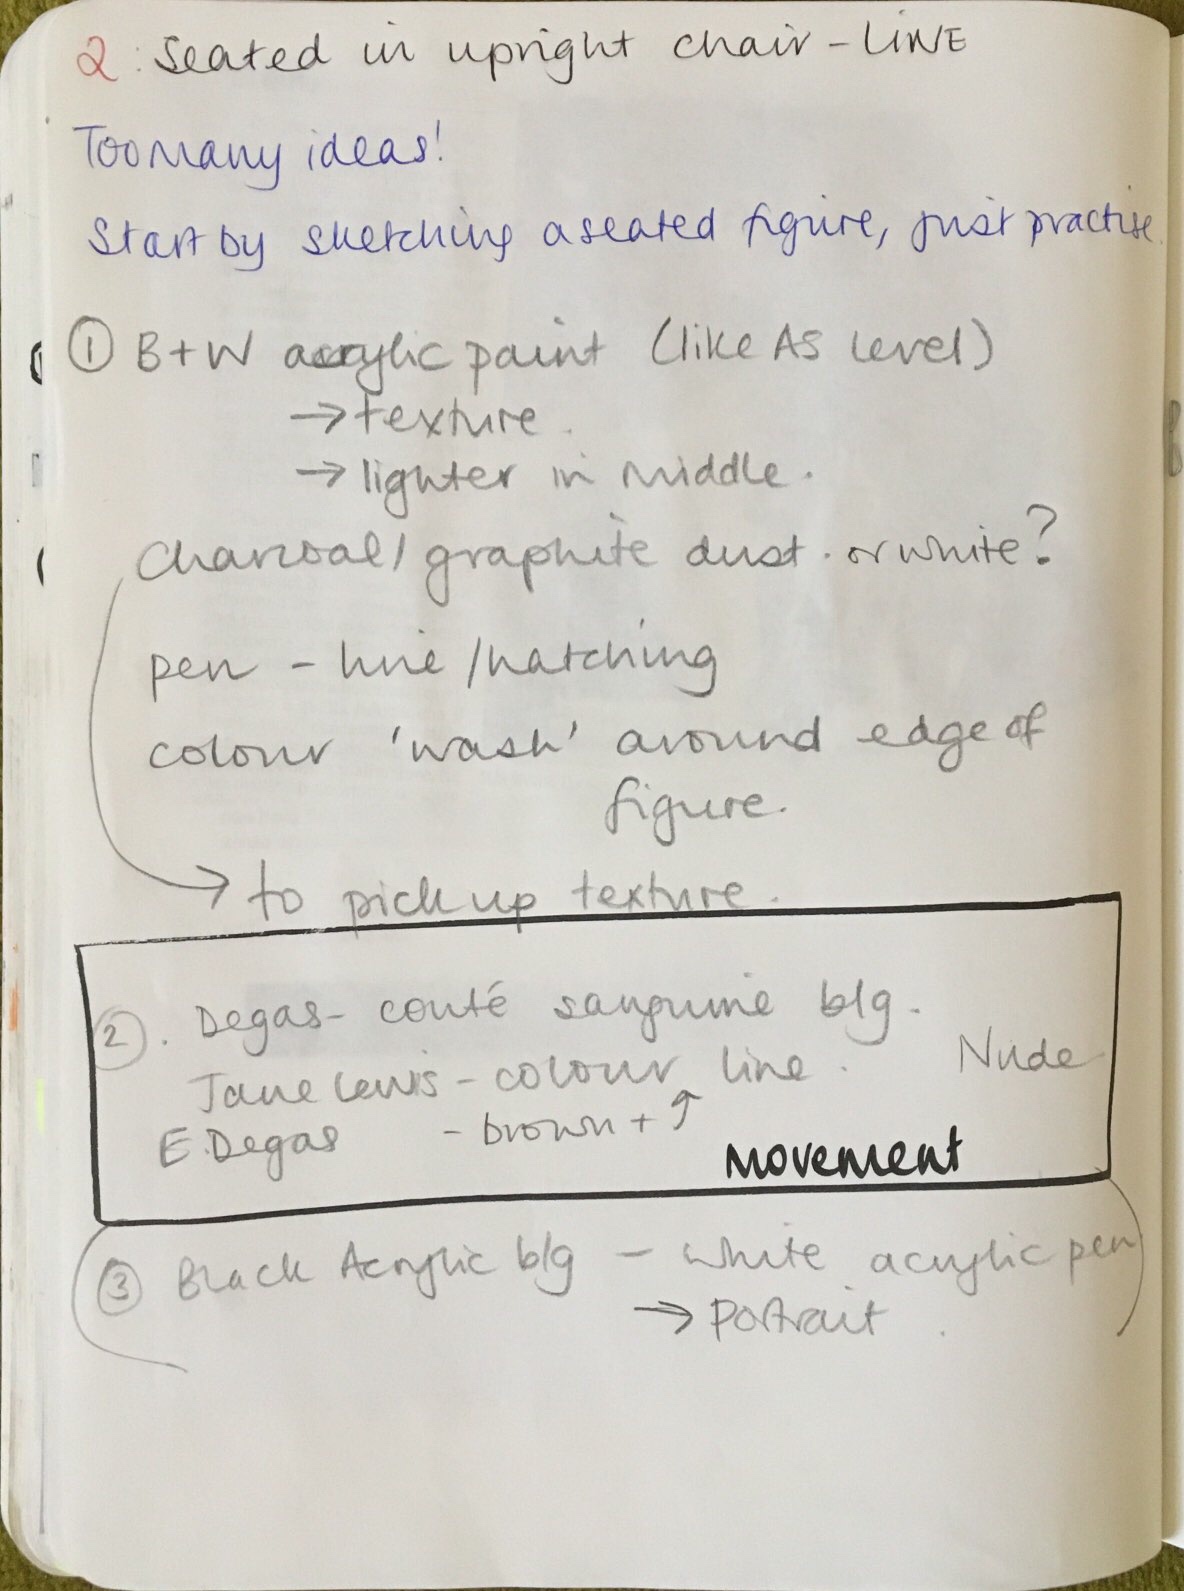 2: Seated in upright chair - LINE
Too many ideas!
Start by sketching a seated figure, just practise.
① B+W acrylic paint (like AS level)
→ texture.
→ lighter in middle.
Charcoal / graphite dust. or white?
pen - line / hatching
colour 'wash' around edge of
figure.
→ to pick up texture.
②. Degas - conté sanguine b/g.
Nude
Jane Lewis - colour line.
E. Degas - brown + ↑
MOVEMENT
③ Black Acrylic b/g - white acrylic pen
→ Portrait.